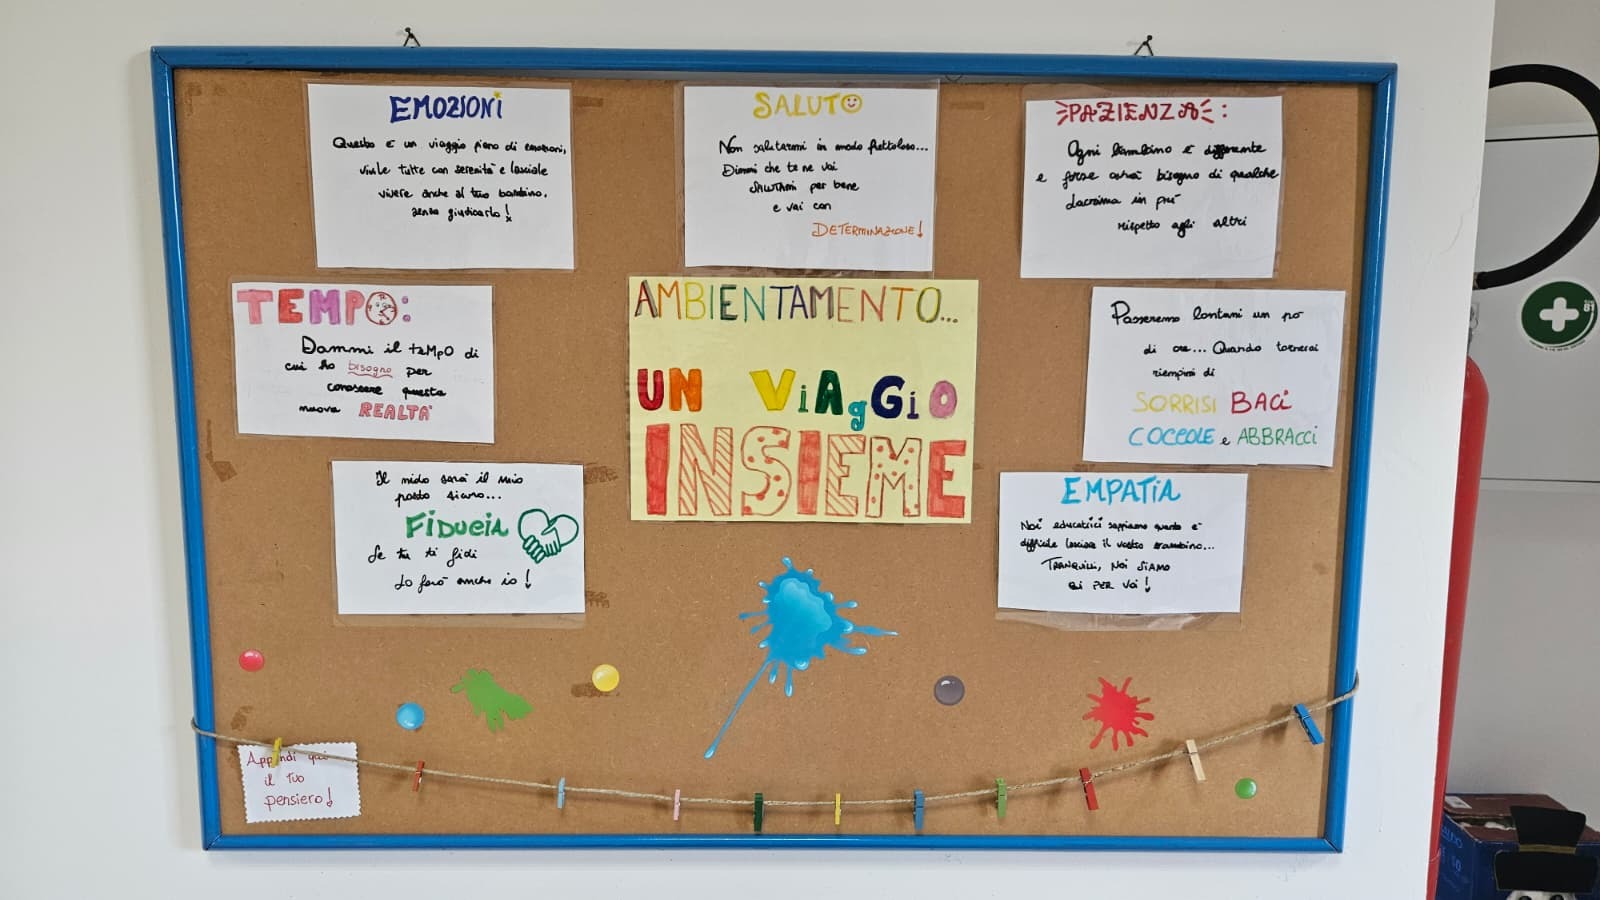 EMOZIONI
Questo è un viaggio pieno di emozioni,
vivile tutte con serenità e lasciale
vivere anche al tuo bambino.
senza giudicarlo!
SALUTO
Non salutarmi in modo frettoloso...
Dimmi che te ne vai
SALUTAMI per bene
e vai con
DETERMINAZIONE!
PAZIENZA:
Ogni bambino è differente
e forse avrà bisogno di qualche
Lacrima in più
rispetto agli altri
TEMPO:
Dammi il teMpO di
cui ho bisogno per
conoscere questa
nuova REALTA'
AMBIENTAMENTO...
UN ViAgGiO
INSIEME
Passeremo lontani un pò
di ore... Quando tornerai
riempimi di
SORRISI BACi
COCCOLE e ABBRACCi
Il nido sarà il mio
posto sicuro...
FiDUCiA
Se tu ti fidi
Lo farò anche io!
EMPATIA
Noi educatrici sappiamo quanto è
difficile lasciare il vostro bambino...
TRANQUILLI, NOI SIAMO
QI PER VOI!
Appendi qui
il tuo
pensiero!
81